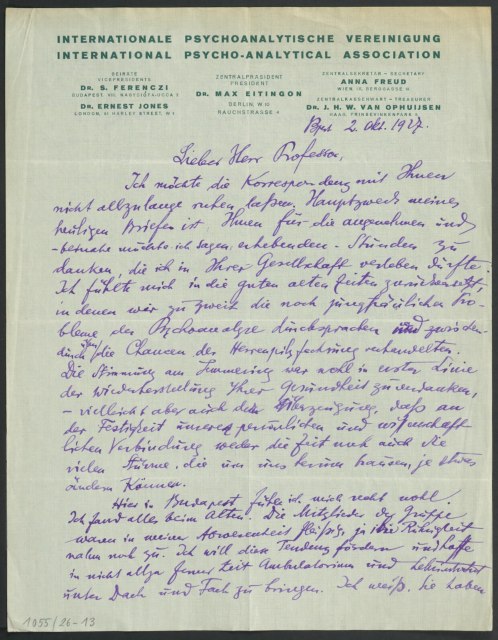 INTERNATIONALE PSYCHOANALYTISCHE VEREINIGUNG
INTERNATIONAL PSYCHO-ANALYTICAL ASSOCIATION
BEIRÄTE
VICEPRESIDENTS
DR. S. FERENCZI
BUDAPEST, VII. NAGYDIÓFA-UCCA 3
DR. ERNEST JONES
LONDON, 81 HARLEY STREET, W 1
ZENTRALPRÄSIDENT
PRESIDENT
DR. MAX EITINGON
BERLIN, W. 10
RAUCHSTRASSE 4
ZENTRALSEKRETÄR – SECRETARY
ANNA FREUD
WIEN IX, BERGGASSE 19
ZENTRALKASSENWART – TREASURER
DR. J. H. W. VAN OPHUIJSEN
HAAG, PRINSEVINKENPARK 5
Bpest 2. Okt. 1927.
Lieber Herr Professor,
Ich möchte die Korrespondenz mit Ihnen
nicht allzulange ruhen laßen. Hauptzweck meines
heutigen Briefes ist Ihnen für die angenehmen und
– beinahe möchte ich sagen erhebenden – Stunden zu
danken, die ich in Ihrer Gesellschaft verleben durfte.
Ich fühlte mich in die guten alten Zeiten zurückversetzt,
in denen wir zu zweit die noch jungfräulichen Pro-
bleme der Psychoanalyse durchsprachen und zwischen-
durch über die Chancen der Herrenpilzfechsung verhandelten.
Die Stimmung am Semmering war wohl in erster Linie
der Wiederherstellung Ihrer Gesundheit zu verdanken,
– vielleicht aber auch der Überzeugung, daß an
der Festigkeit unserer persönlichen und wissenschaft-
lichen Verbindung weder die Zeit noch auch die
vielen Stürme, die um uns herum hausen, je etwas
ändern können.
Hier in Budapest fühle ich mich recht wohl.
Ich fand alles beim Alten. Die Mitglieder der Gruppe
waren in meiner Abwesenheit fleißig, ja ihre Rührigkeit
nahm noch zu. Ich will diese Tendenz fördern und hoffe
in nicht allzu ferner Zeit Ambulatorium und Lehrinstitut
unter Dach und Fach zu bringen. Ich weiß, Sie haben
1055/26-13